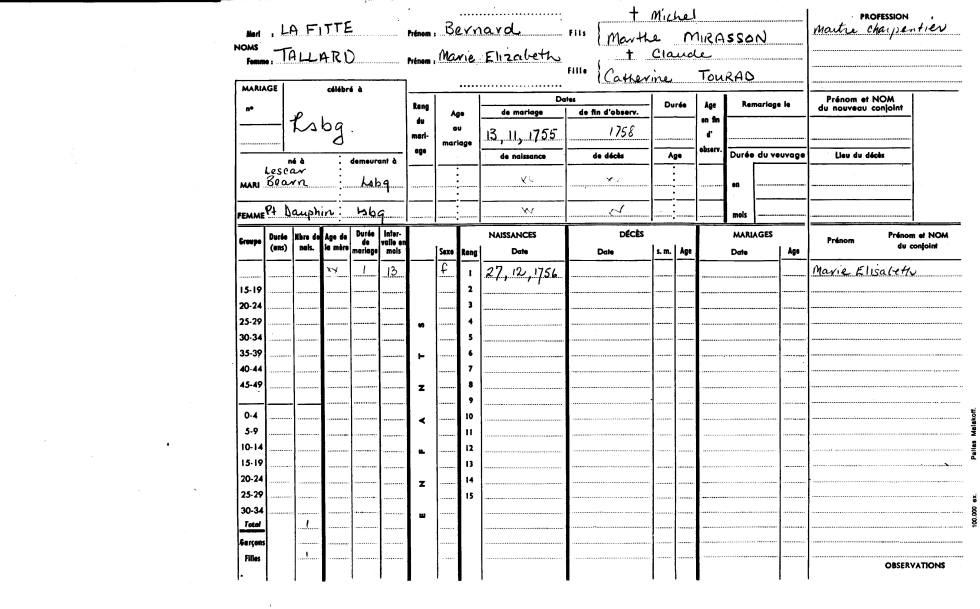 Mari : LA FITTE Prénom : Bernard Fils † Michel
Marthe MIRASSON
NOMS
Femme : TALLARD Prénom : Marie Elizabeth Fille † Claude
Catherine TOURAD
PROFESSION
maitre charpentier
MARIAGE célébré à
n° Lsbg.
né à demeurant à
MARI Lescar Bearn Lsbg
FEMME Pt Dauphin Lsbg
Rang du mari- age
Age au mariage
Dates
de mariage de fin d'observ.
13, 11, 1755 1758
de naissance de décès
Durée
Age
Age en fin d' observ.
Remariage le
Durée du veuvage
en
mois
Prénom et NOM du nouveau conjoint
Lieu du décès
Groupe Durée (ans) Nbre de nais. Age de la mère Durée de mariage Inter- valle en mois Sexe Rang NAISSANCES Date DÉCÈS Date s. m. Age MARIAGES Date Age Prénom Prénom et NOM du conjoint
1 13 f 1 27, 12, 1756 Marie Elisabeth
15-19 2
20-24 3
25-29 4
30-34 5
35-39 6
40-44 7
45-49 8
9
0-4 10
5-9 11
10-14 12
15-19 13
20-24 14
25-29 15
30-34
Total 1
Garçons
Filles 1
ENFANTS
OBSERVATIONS
100.000 ex. Pairies Malakoff.